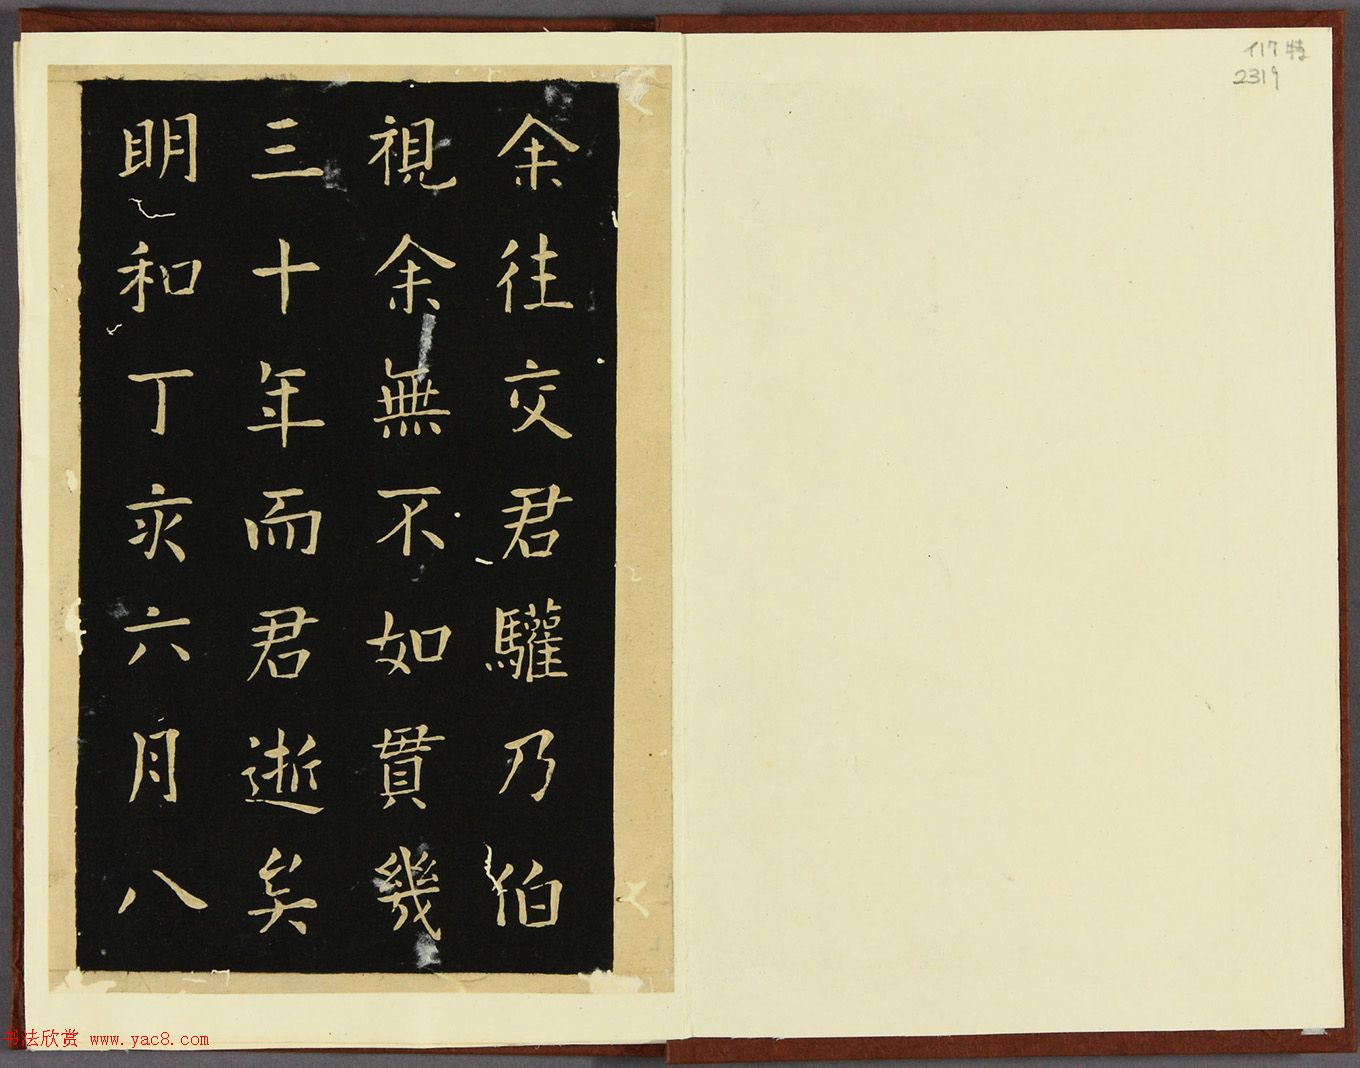 余往交君驩乃伯
視余無不如貫幾
三十年而君逝矣
明和丁亥六月八
117特
2319
书法欣赏 www.yac8.com